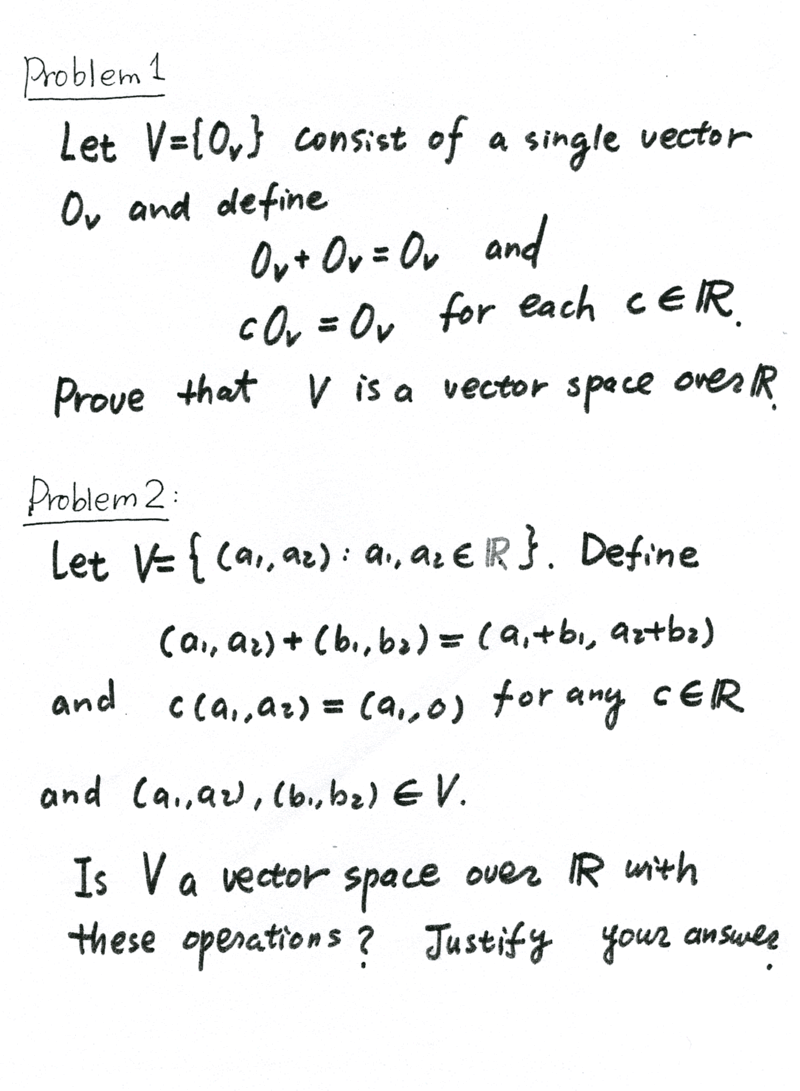 Problem 1
Let V={0ᵥ} consist of a single vector
0ᵥ and define
0ᵥ + 0ᵥ = 0ᵥ and
c0ᵥ = 0ᵥ for each c ∈ ℝ.
Prove that V is a vector space over ℝ.
Problem 2:
Let V= { (a₁, a₂) : a₁, a₂ ∈ ℝ }. Define
(a₁, a₂) + (b₁, b₂) = (a₁+b₁, a₂+b₂)
and c(a₁, a₂) = (a₁, 0) for any c ∈ ℝ
and (a₁, a₂), (b₁, b₂) ∈ V.
Is V a vector space over ℝ with
these operations? Justify your answer.